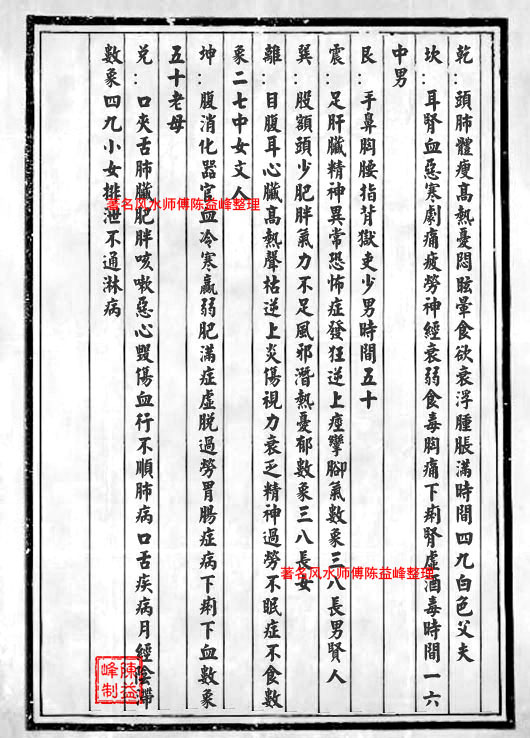 乾：頭肺體瘦高熱憂悶眩暈食欲衰浮腫脹滿時間四九白色父夫
坎：耳腎血惡寒劇痛疲勞神經衰弱食毒胸痛下痢腎虛酒毒時間一六
中男
艮：手鼻胸腰指背獄吏少男時間五十
震：足肝臟精神異常恐怖症發狂逆上痙攣腳氣數象三八長男賢人
巽：股額頭少肥胖氣力不足風邪潛熱憂郁數象三八長女
離：目腹耳心臟高熱聲枯逆上炎傷視力衰乏精神過勞不眠症不食數
象二七中女文人
坤：腹消化器官血冷寒羸弱肥滿症虛脫過勞胃腸症病下痢下血數象
五十老母
兌：口夾舌肺臟肥胖咳嗽惡心毀傷血行不順肺病口舌疾病月經陰滯
數象四九小女排泄不通淋病
著名风水师傅陈益峰整理
著名风水师傅陈益峰整理
陳益
峰制